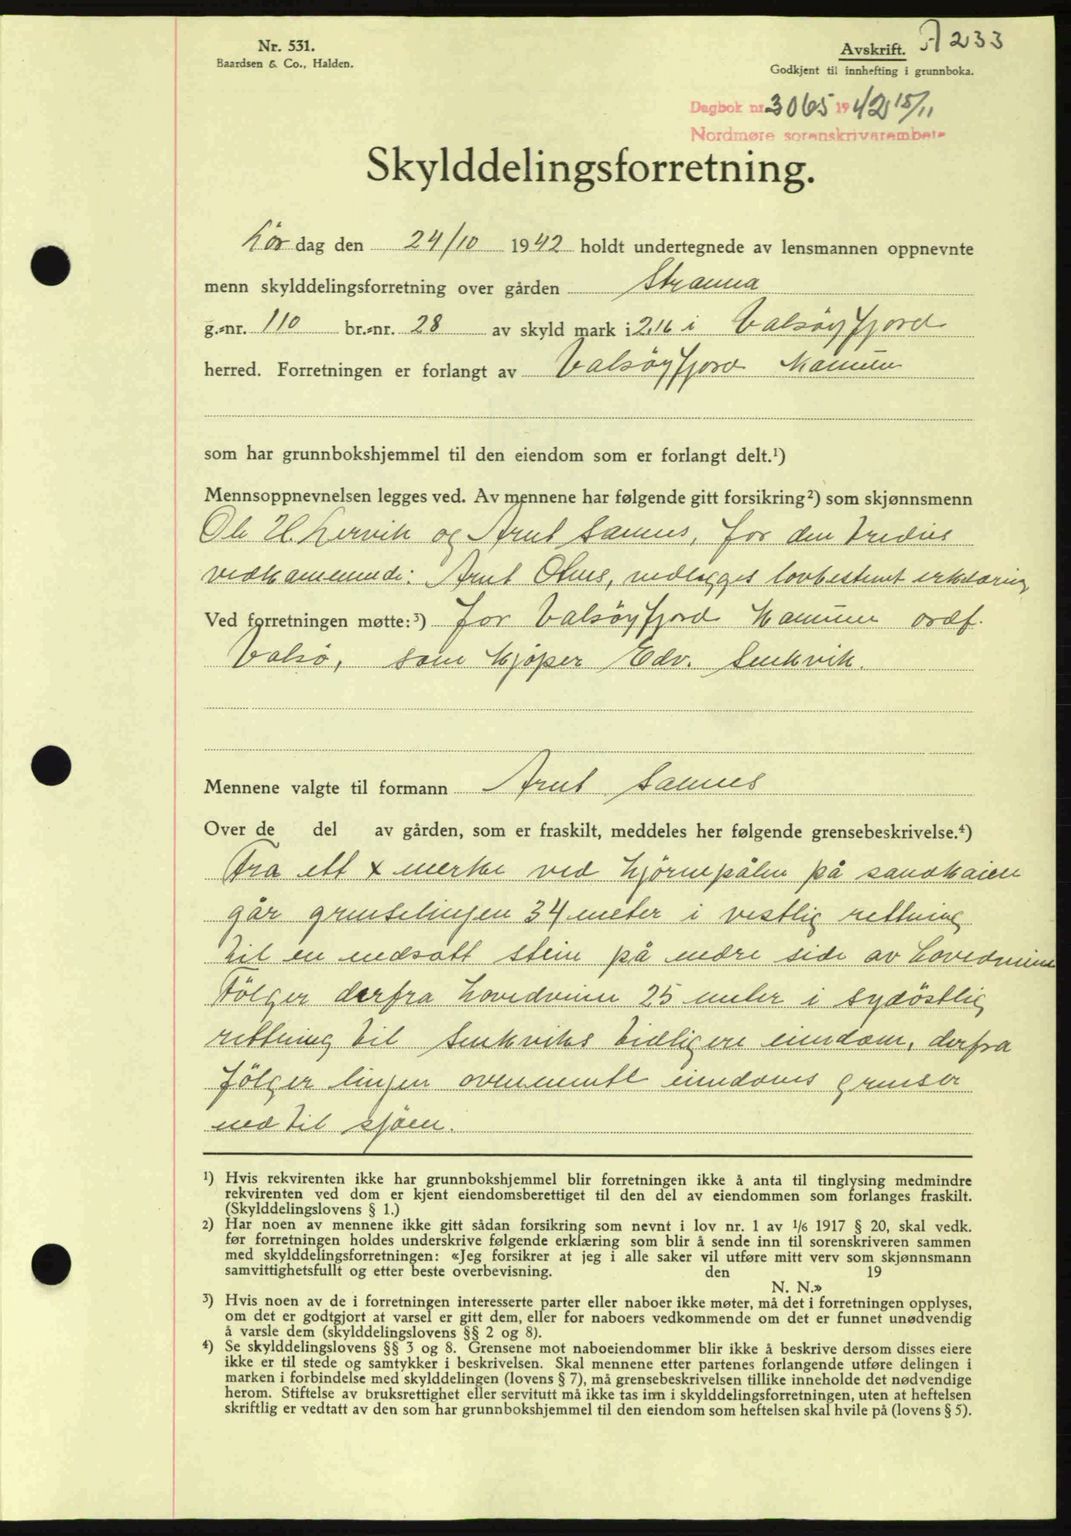 Nr. 531.
Baardsen & Co., Halden.
Avskrift. A 233
Godkjent til innhefting i grunnboka.
Dagbok nr. 3065 1942 15/11
Nordmøre sorenskriverembete
Skylddelingsforretning.
Lør dag den 24/10 1942 holdt undertegnede av lensmannen oppnevnte
menn skylddelingsforretning over gården Stranna
g.-nr. 110 br.-nr. 28 av skyld mark i 2,16 i Valsøyfjord
herred. Forretningen er forlangt av Valsøyfjord
som har grunnbokshjemmel til den eiendom som er forlangt delt.¹)
Mennsoppnevnelsen legges ved. Av mennene har følgende gitt forsikring²) som skjønnsmenn
Ole H. Lervik og Arnt, for den tredies
vedkommende: Arnt, vedlegges lovbestemt erklæring
Ved forretningen møtte:³) for Valsøyfjord ordf.
Valsö, som kjøper Edv.
Mennene valgte til formann Arnt
Over de del av gården, som er fraskilt, meddeles her følgende grensebeskrivelse.⁴)
Fra ett x merke ved hjørnepålen på sandkaien
går grenselinjen 34 meter i vestlig rettning
til en nedsatt stein på nedre side av
Følger derfra 25 meter i sydöstlig
rettning til tidligere eiendom, derfra
følger linjen ovennevnte eiendoms grenser
ned til sjøen.
¹) Hvis rekvirenten ikke har grunnbokshjemmel blir forretningen ikke å anta til tinglysing medmindre
rekvirenten ved dom er kjent eiendomsberettiget til den del av eiendommen som forlanges fraskilt.
(Skylddelingslovens § 1.)
²) Har noen av mennene ikke gitt sådan forsikring som nevnt i lov nr. 1 av 1/6 1917 § 20, skal vedk.
før forretningen holdes underskrive følgende erklæring som blir å sende inn til sorenskriveren sammen
med skylddelingsforretningen: «Jeg forsikrer at jeg i alle saker vil utføre mitt verv som skjønnsmann
samvittighetsfullt og etter beste overbevisning. den 19
N. N.»
³) Hvis noen av de i forretningen interesserte parter eller naboer ikke møter, må det i forretningen opplyses,
om det er godtgjort at varsel er gitt dem, eller for naboers vedkommende om det er funnet unødvendig
å varsle dem (skylddelingslovens §§ 2 og 8).
⁴) Se skylddelingslovens §§ 3 og 8. Grensene mot naboeiendommer blir ikke å beskrive dersom disses eiere
ikke er til stede og samtykker i beskrivelsen. Skal mennene etter partenes forlangende utføre delingen i
marken i forbindelse med skylddelingen (lovens § 7), må grensebeskrivelsen tillike inneholde det nødvendige
herom. Stiftelse av bruksrettighet eller servitutt må ikke tas inn i skylddelingsforretningen, uten at heftelsen
skriftlig er vedtatt av den som har grunnbokshjemmel til den eiendom som heftelsen skal hvile på (lovens § 5).